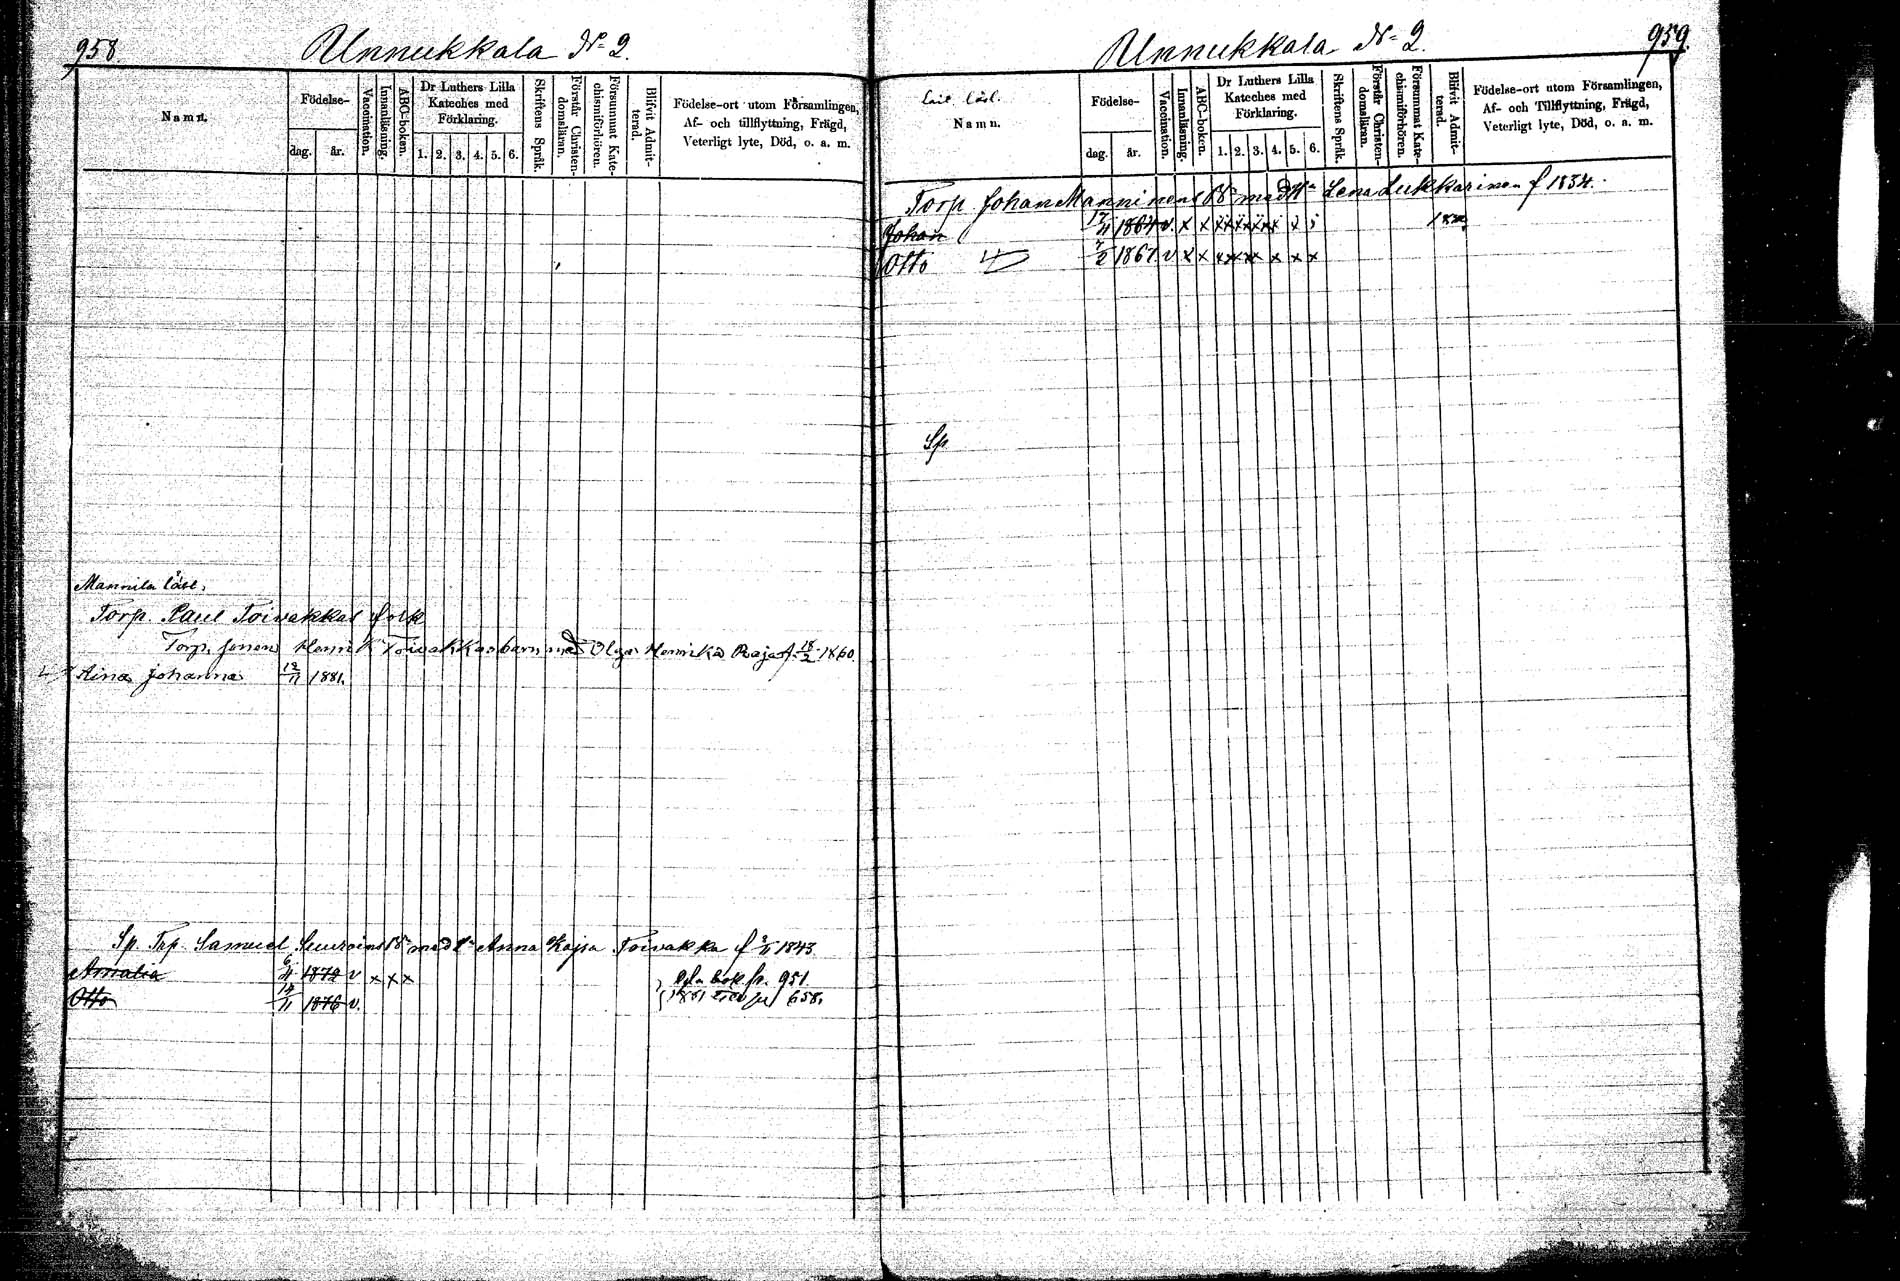 958.
Unnukkala No 2.
Namn.
Födelse-
dag.
år.
Vaccination.
Innanläsning.
ABC-boken.
Dr Luthers Lilla
Kateches med
Förklaring.
1. 2. 3. 4. 5. 6.
Skriftens Språk.
Förstår Christen-
domsläran.
Försummat Kate-
chismiförhören.
Blifvit Admit-
terad.
Födelse-ort utom Församlingen,
Af- och tillflyttning, Frägd,
Veterligt lyte, Död, o. a. m.
Mannila läsl.
Torp. Paul Toivakkas folk
Torp. sonen Henrik Toivakkas barn med Olga Henrika Raja f. 18/2 1860.
Aina Johanna 12/11 1881.
Sp. Trp. Samuel Suuroins Bn med Anna Kajsa Toivakka f 3/11 1843.
Amalia 6/4 1872 v x x x
bok p. 951.
Otto 14/11 1876 v.
658.
959.
Unnukkala No 2.
läsl.
Namn.
Födelse-
dag.
år.
Vaccination.
Innanläsning.
ABC-boken.
Dr Luthers Lilla
Kateches med
Förklaring.
1. 2. 3. 4. 5. 6.
Skriftens Språk.
Förstår Christen-
domsläran.
Försummat Kate-
chismiförhören.
Blifvit Admit-
terad.
Födelse-ort utom Församlingen,
Af- och Tillflyttning, Frägd,
Veterligt lyte, Död, o. a. m.
Torp. Johan Manninens Bn med Lena Lukkarinen f 1834.
Johan 17/11 1864 v. x x
Otto 7/2 1867 v x x x x x x x x
Sp.